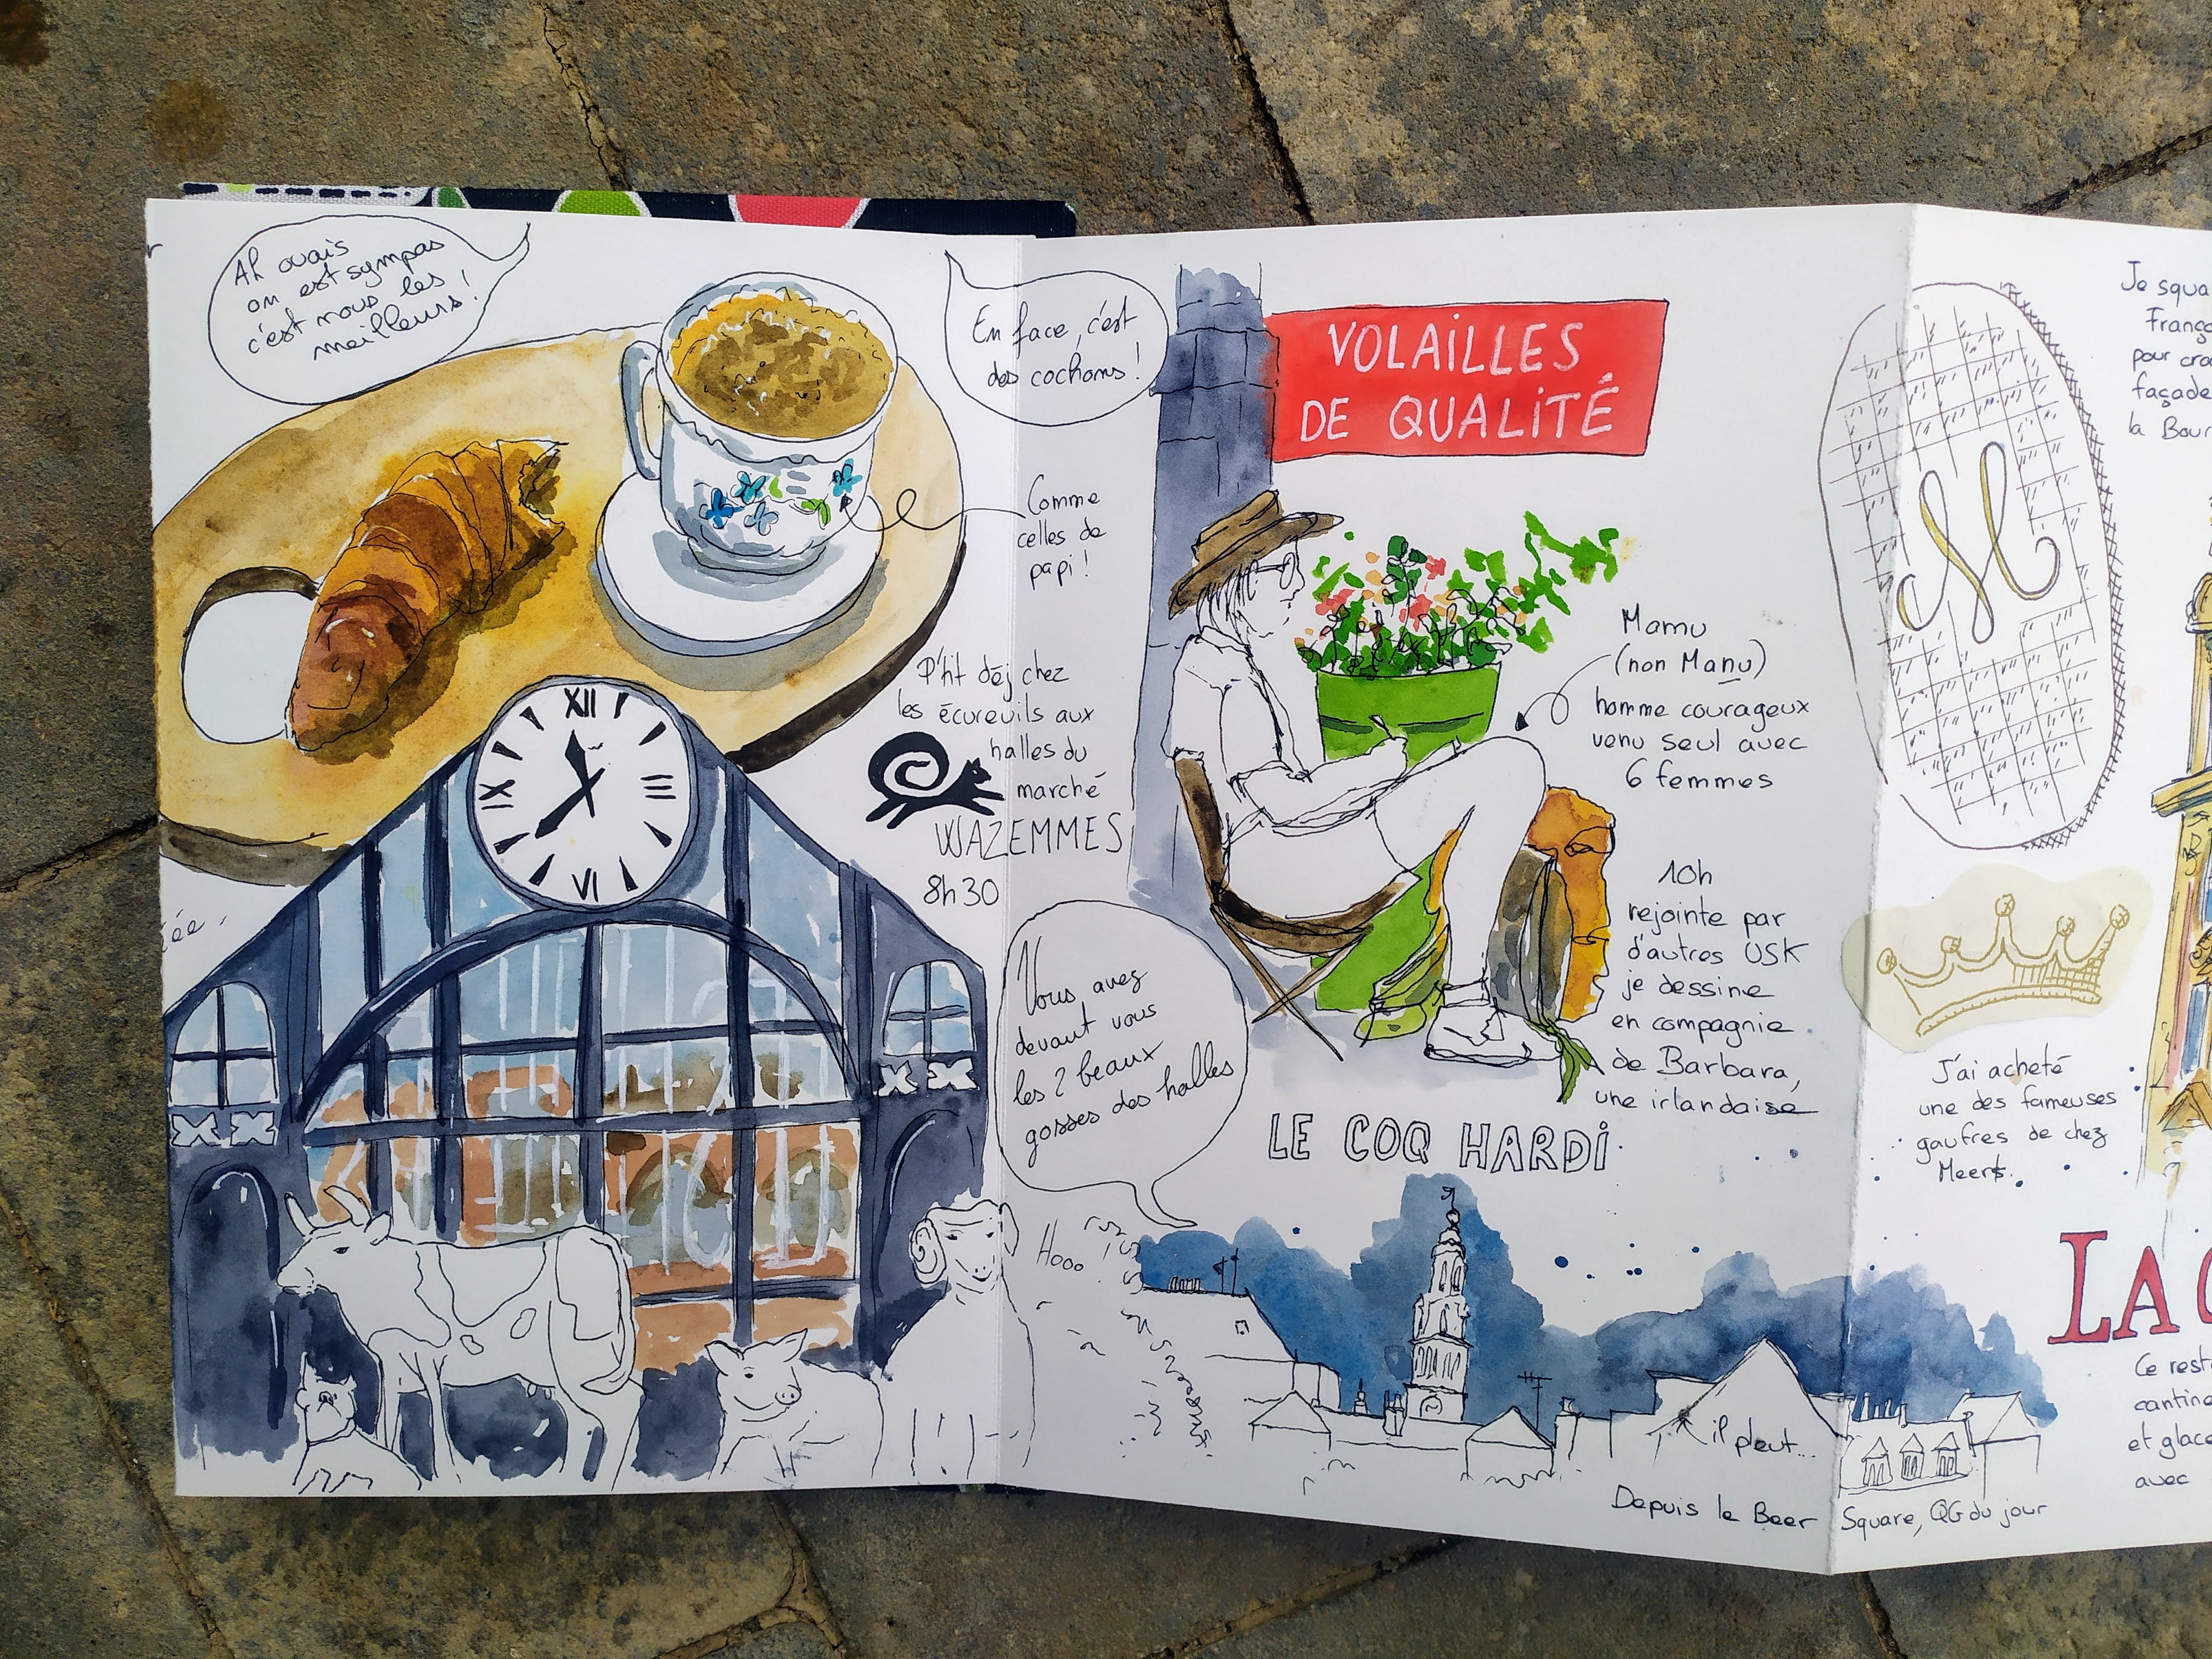 Ah ouais
on est sympas
c'est nous les
meilleurs!
En face, c'est
des cochons!
Comme
celles de
papi!
P'tit déj chez
les écureuils aux
halles du
marché
WAZEMMES
8h30
XII
VI
Vous avez
devant vous
les 2 beaux
gosses des halles
Hooo!
VOLAILLES
DE QUALITÉ
Mamu
(non Manu)
homme courageux
venu seul avec
6 femmes
10h
rejointe par
d'autres USK
je dessine
en compagnie
de Barbara,
une irlandaise
LE COQ HARDI
il pleut...
Depuis le Beer Square, QG du jour
M
J'ai acheté
une des fameuses
gaufres de chez
Meert.
Je squa
França
pour cro
façade
la Bour
LA
Ce rest
cantine
et glace
avec